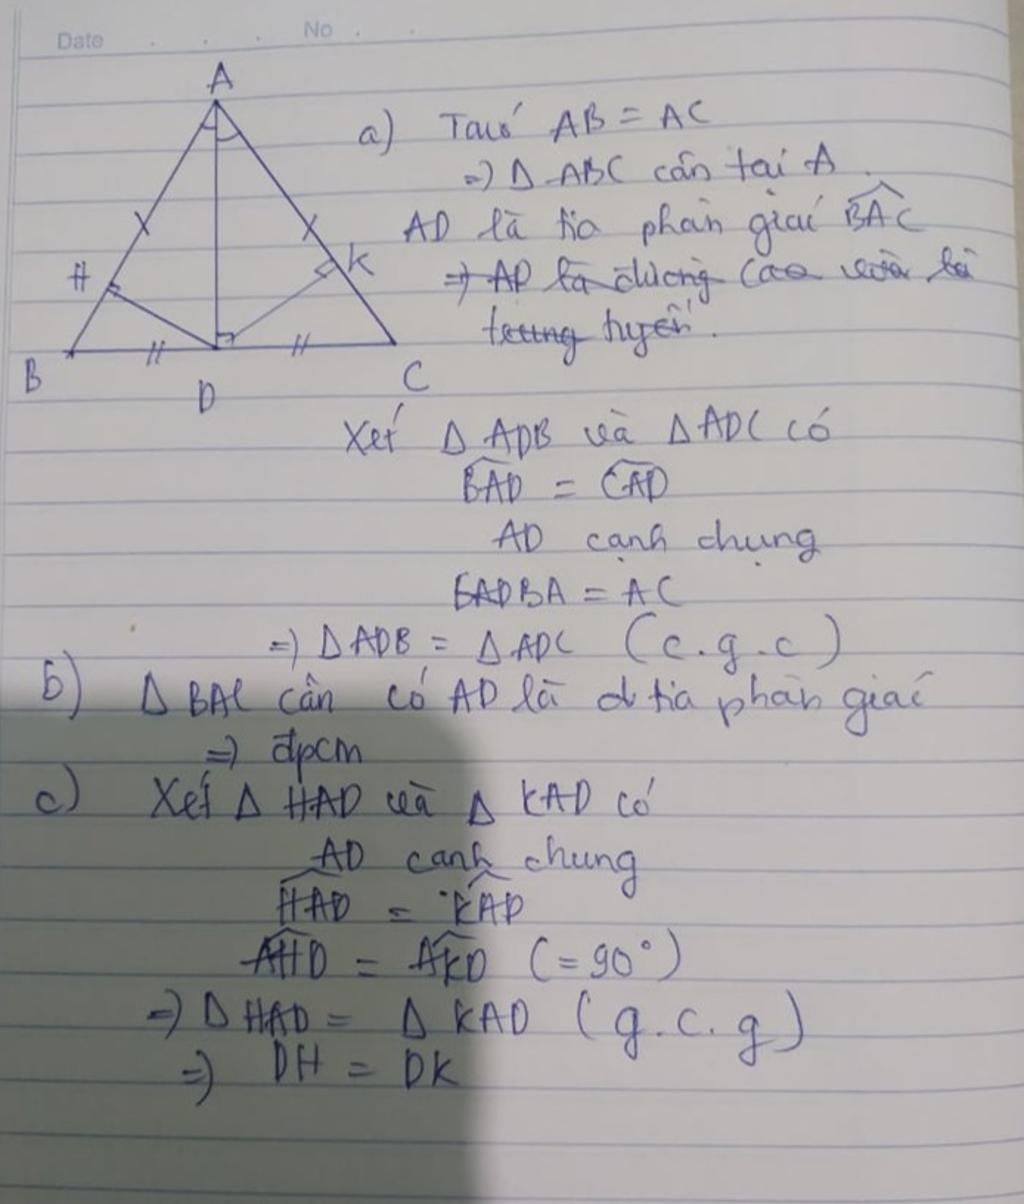 Date . . . No . .
A
H
K
B
D
C
a) Ta có AB = AC
=) Δ ABC cân tại A.
AD là tia phân giác BAC
=) AD là đường cao vừa là
trung tuyến.
Xét Δ ADB và Δ ADC có
BAD = CAD
AD cạnh chung
BA = AC
=) Δ ADB = Δ ADC (c.g.c)
b) Δ BAC cân có AD là tia phân giác
=) đpcm
c) Xét Δ HAD và Δ KAD có
AD cạnh chung
HAD = KAD
AHD = AKD (= 90°)
=) Δ HAD = Δ KAD (g.c.g)
=) DH = DK